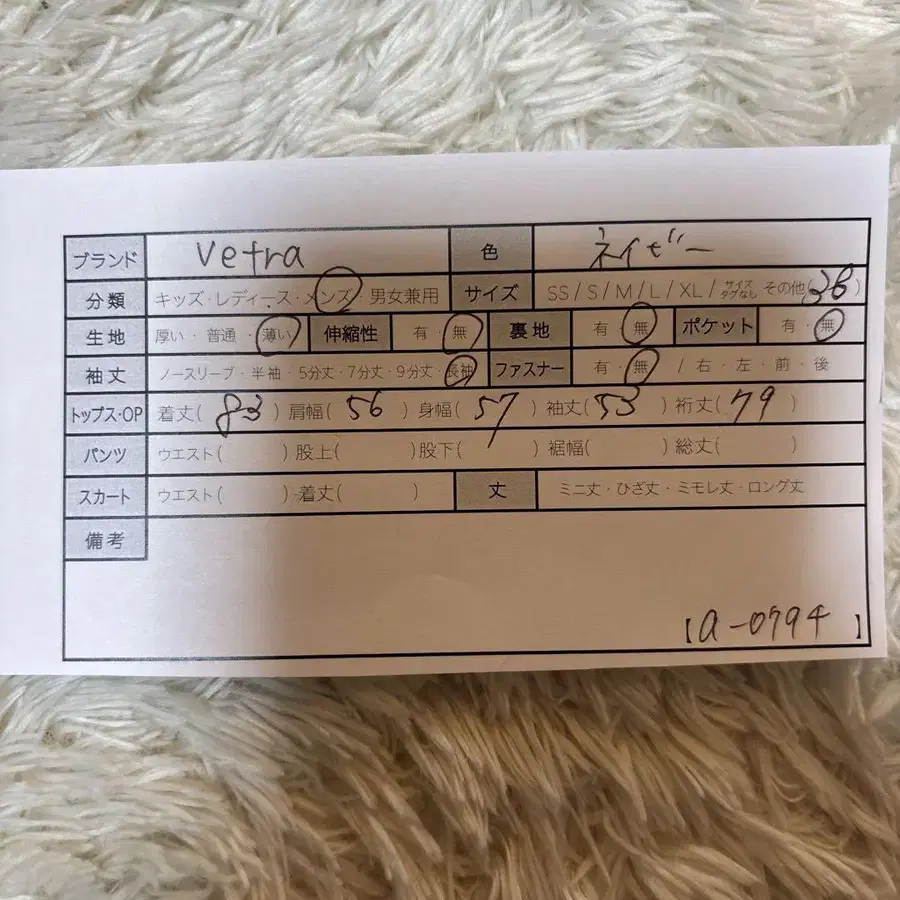 ブランド Vetra 色 ネイビー
分類 キッズ・レディース・メンズ・男女兼用 サイズ SS / S / M / L / XL / サイズタグなし その他(36)
生地 厚い・普通・薄い 伸縮性 有・無 裏地 有・無 ポケット 有・無
袖丈 ノースリーブ・半袖・5分丈・7分丈・9分丈・長袖 ファスナー 有・無 / 右・左・前・後
トップス・OP 着丈(83) 肩幅(56) 身幅(57) 袖丈(53) 裄丈(79)
パンツ ウエスト( ) 股上( ) 股下( ) 裾幅( ) 総丈( )
スカート ウエスト( ) 着丈( ) 丈 ミニ丈・ひざ丈・ミモレ丈・ロング丈
備考
【a-0794】